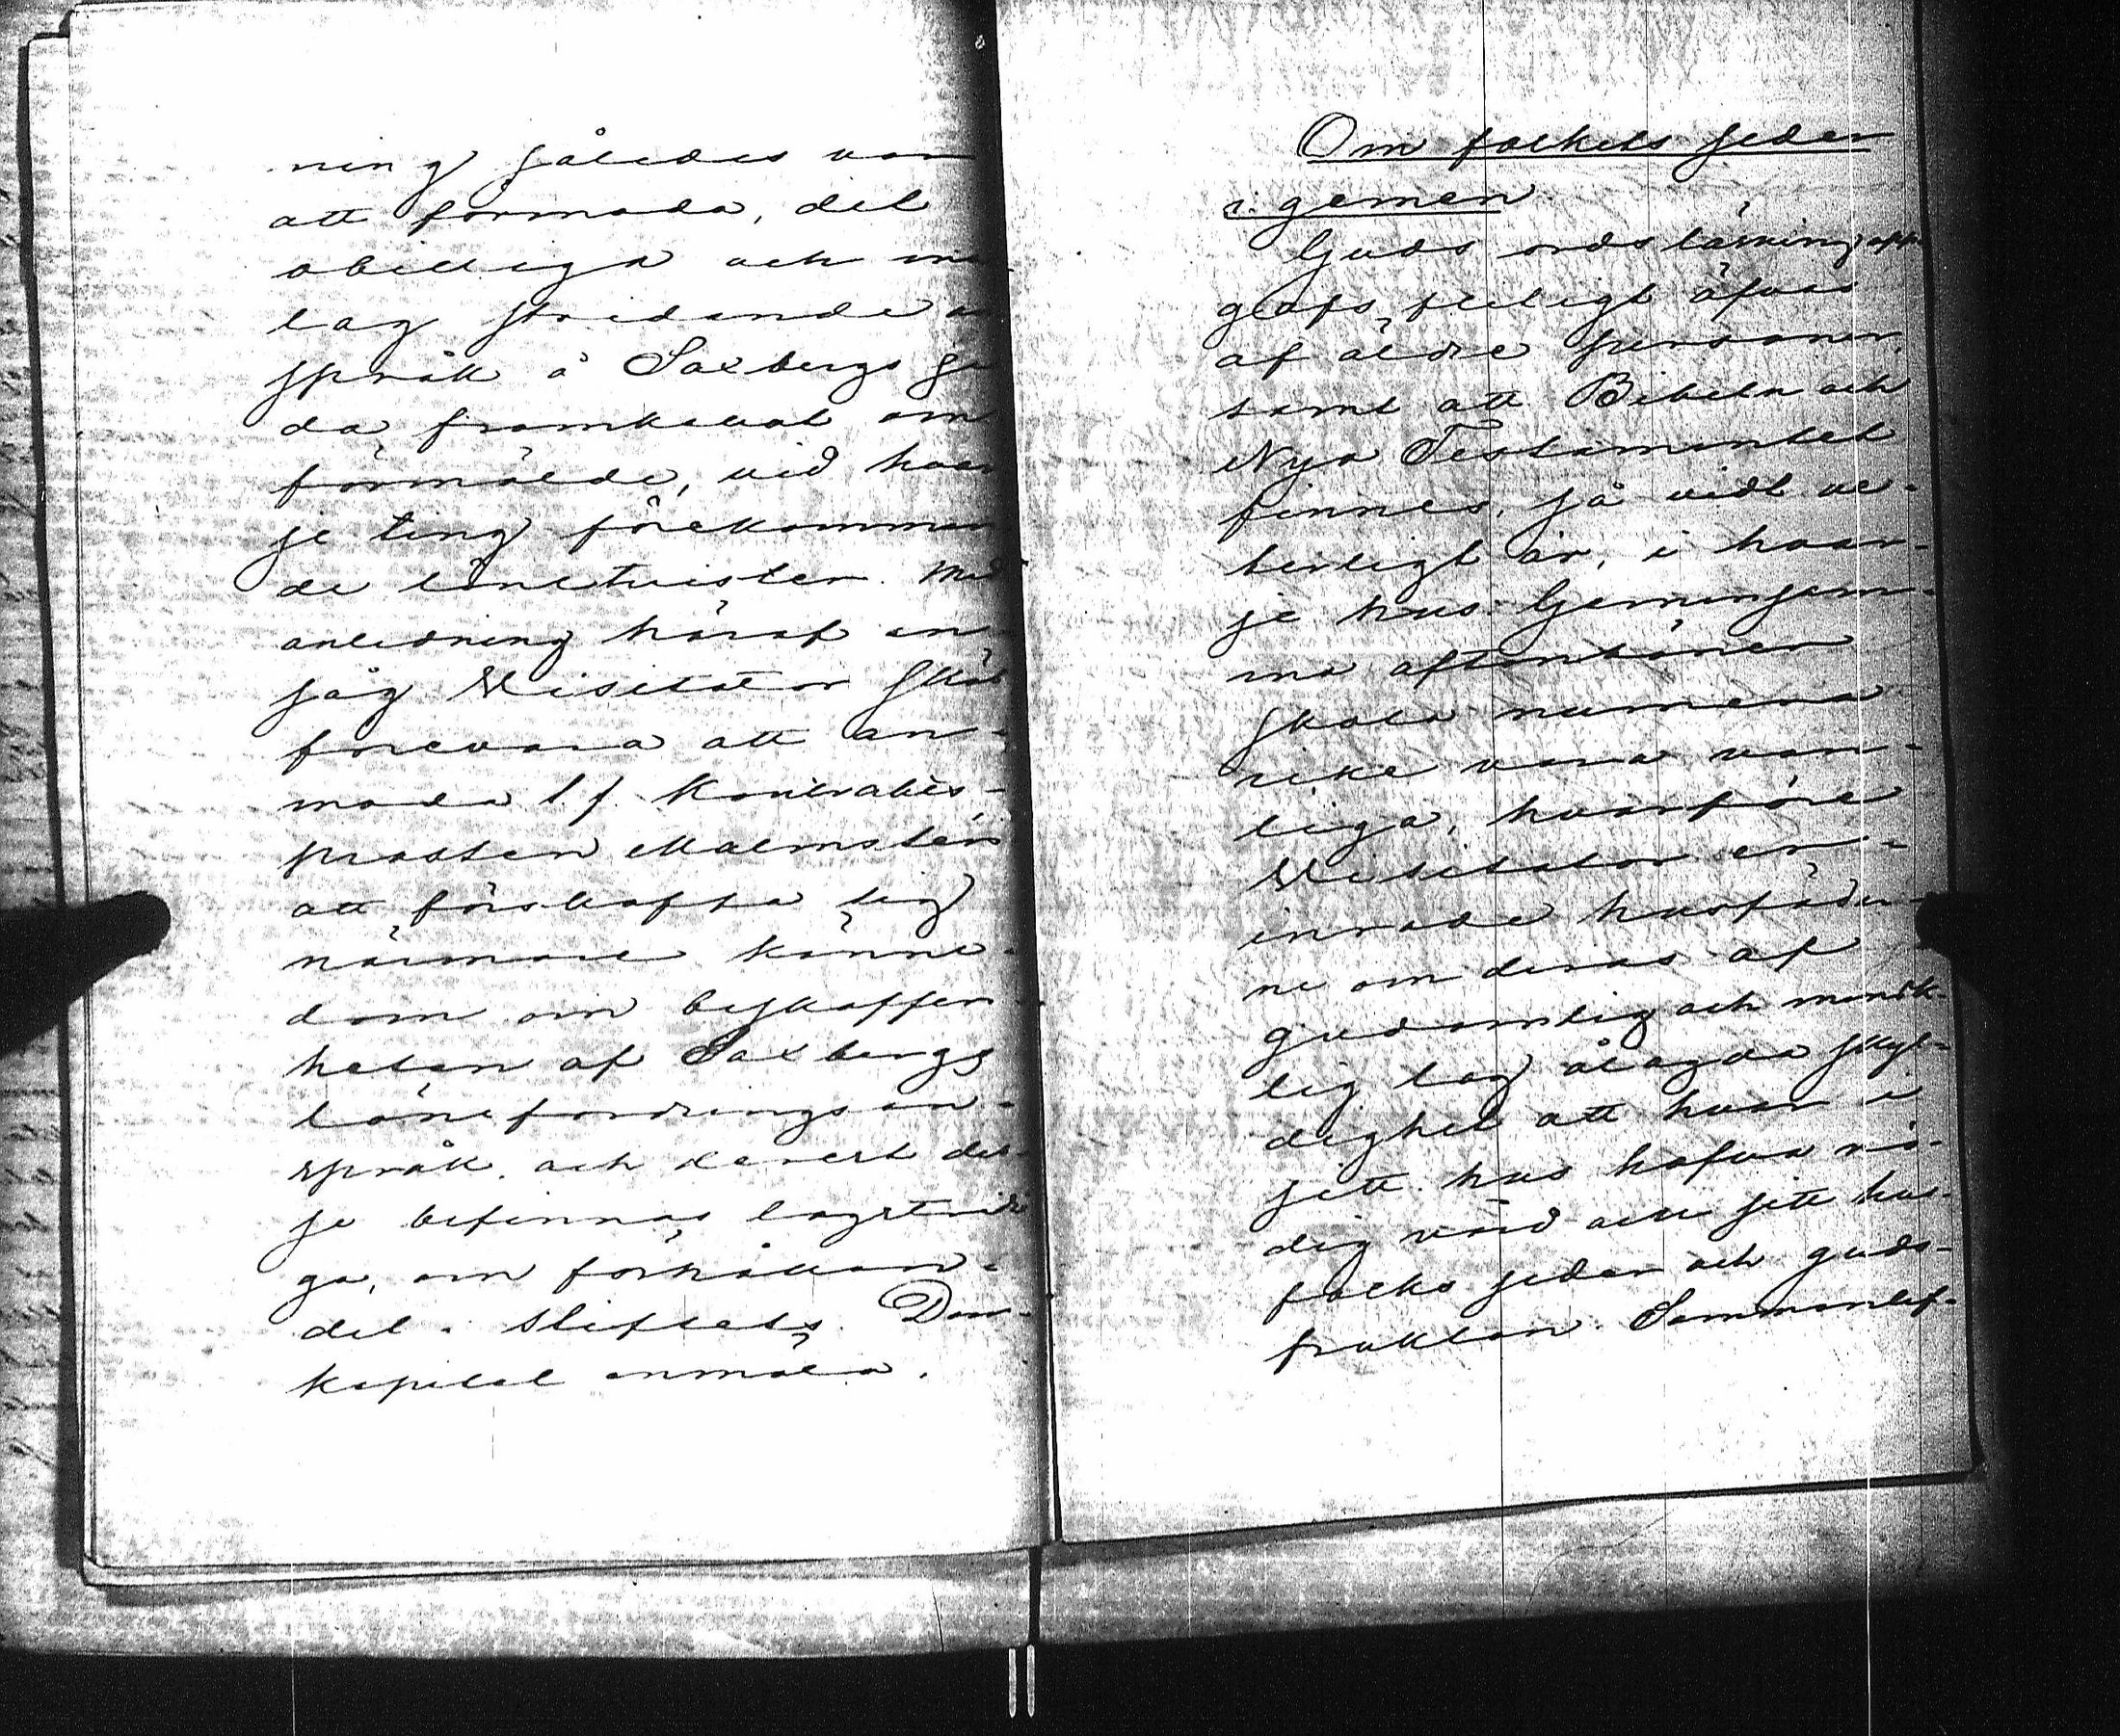 ning således var
att förmoda, det
obilliga och mi
lag stridande a
språk å Saxbergs si
da framkallat om
förmälde, vid hvar
je ting förekommen
de lönetvister. Med
anledning häraf an
såg Visitator skäl
förevara att an-
moda t. f. Kontrakts-
prosten Malmstén
att förskaffa sig
närmare känne-
dom om beskaffen
heten af Saxbergs
lönefordringsan-
språk. och derest des-
se befinnas lagstridi
ga, om förhållan-
det i Stiftets Dom-
kapitel anmäla.
Om folkets seder
i gemen
Guds ords läsning upp
gafs fliteligt öfvas
af äldre personer
samt att Bibeln och
Nya Testamentet
finnes, så vidt ve-
terligt är, i hvar-
je hus. Gemensam-
ma aftonböner
skola numera
icke vara van-
liga, hvarföre
Visitator er-
inrade husfäder-
ne om deras af
gudomlig och mensk-
lig lag ålagda skyl-
dighet att hvar i
sitt hus hafva nö-
dig vård om sitt hus-
folks seder och guds-
fruktan. Sammanlef-